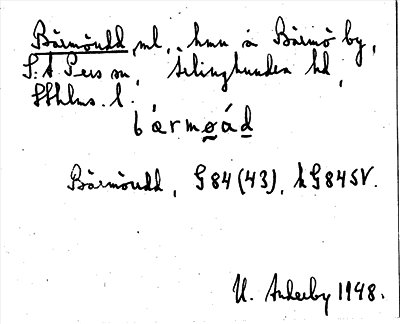 Bärmöudd, ml., hmn å Bärmö by,
S:t Pers sn, Selingkunden hd,
Sthlms. l.
bármøád
Bärmöudd, G84(43), kG84SV.
U. Anderby 1948.